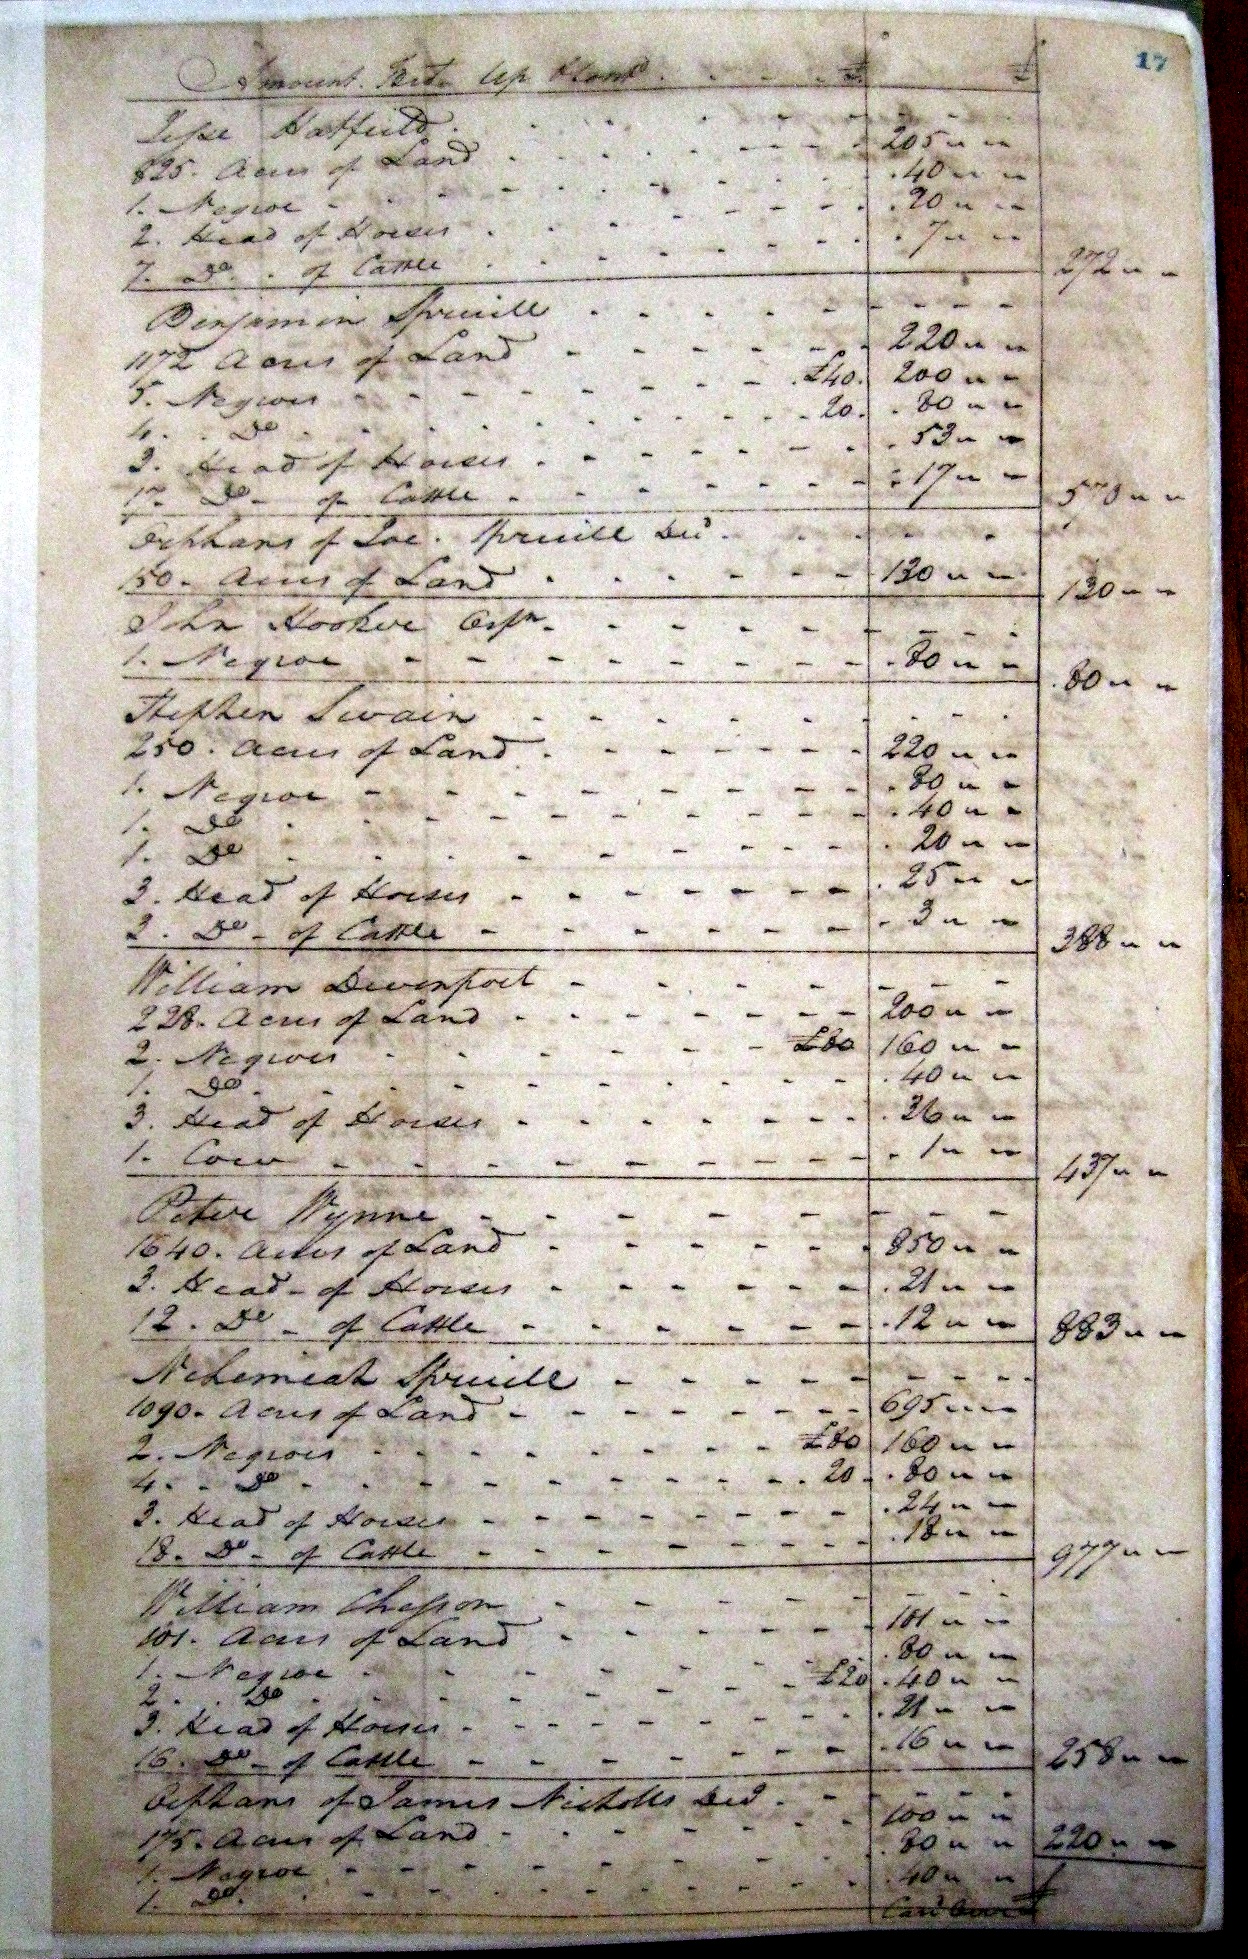 17
Amount Brot. Up & Cont.d . . . . £ £
Jesse Hatfield
825. Acres of Land 205 " "
1. Negroe . 40 " "
2. Head of Horses . 20 " "
7. Do. of Cattle . 7 " " 272 " "
Benjamin Spruill
1172 Acres of Land 220 " "
5. Negroes £40. 200 " "
4. Do 20. . 80 " "
3. Head of Horses . 53 " "
17. Do - of Cattle . 17 " " 570 " "
Orphans of Joe. Spruill Decd.
150. Acres of Land 130 " " 130 " "
John Hooker Orpn.
1. Negroe . 80 " " . 80 " "
Stephen Swain
250. Acres of Land 220 " "
1. Negroe . 80 " "
1. Do . 40 " "
1. Do . 20 " "
3. Head of Horses . 25 " "
3. Do - of Cattle . 3 " " 388 " "
William Devenport
228. Acres of Land 200 " "
2. Negroes £80 160 " "
1. Do . 40 " "
3. Head of Horses . 36 " "
1. Cow . 1 " " 437 " "
Peter Wynne
1640. Acres of Land 850 " "
3. Head - of Horses . 21 " "
12. Do - of Cattle . 12 " " 883 " "
Nehemiah Spruill
1090. Acres of Land 695 " "
2. Negroes £80 160 " "
4. Do . 20 . 80 " "
3. Head of Horses . 24 " "
18. Do - of Cattle . 18 " " 977 " "
William Chesson
101. Acres of Land 101 " "
1. Negroe . 80 " "
2. Do £20 . 40 " "
3. Head of Horses . 21 " "
16. Do - of Cattle . 16 " " 258 " "
Orphans of James Nicholls Decd.
175. Acres of Land 100 " "
1. Negroe . 80 " " 220 " "
1. Do. . 40 " "
Card Over £